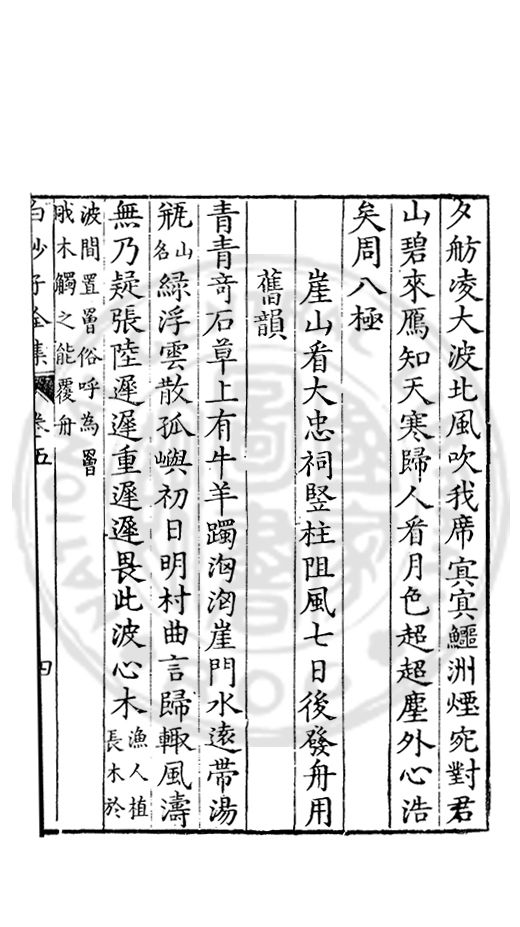 夕舫凌大波北風吹我席㝠㝠鱷洲煙宛對君
山碧來鴈知天寒歸人看月色超超塵外心浩
矣周八極
崖山看大忠祠豎柱阻風七日後發舟用
舊韻
青青奇石草上有牛羊躅洶洶崖門水遠帶湯
瓶山名綠浮雲散孤嶼初日明村曲言歸輙風濤
無乃疑張陸遲遲重遲遲畏此波心木漁人植長木於
波間置罾俗呼為罾
戙木觸之能覆舟
白沙子全集 卷五 四